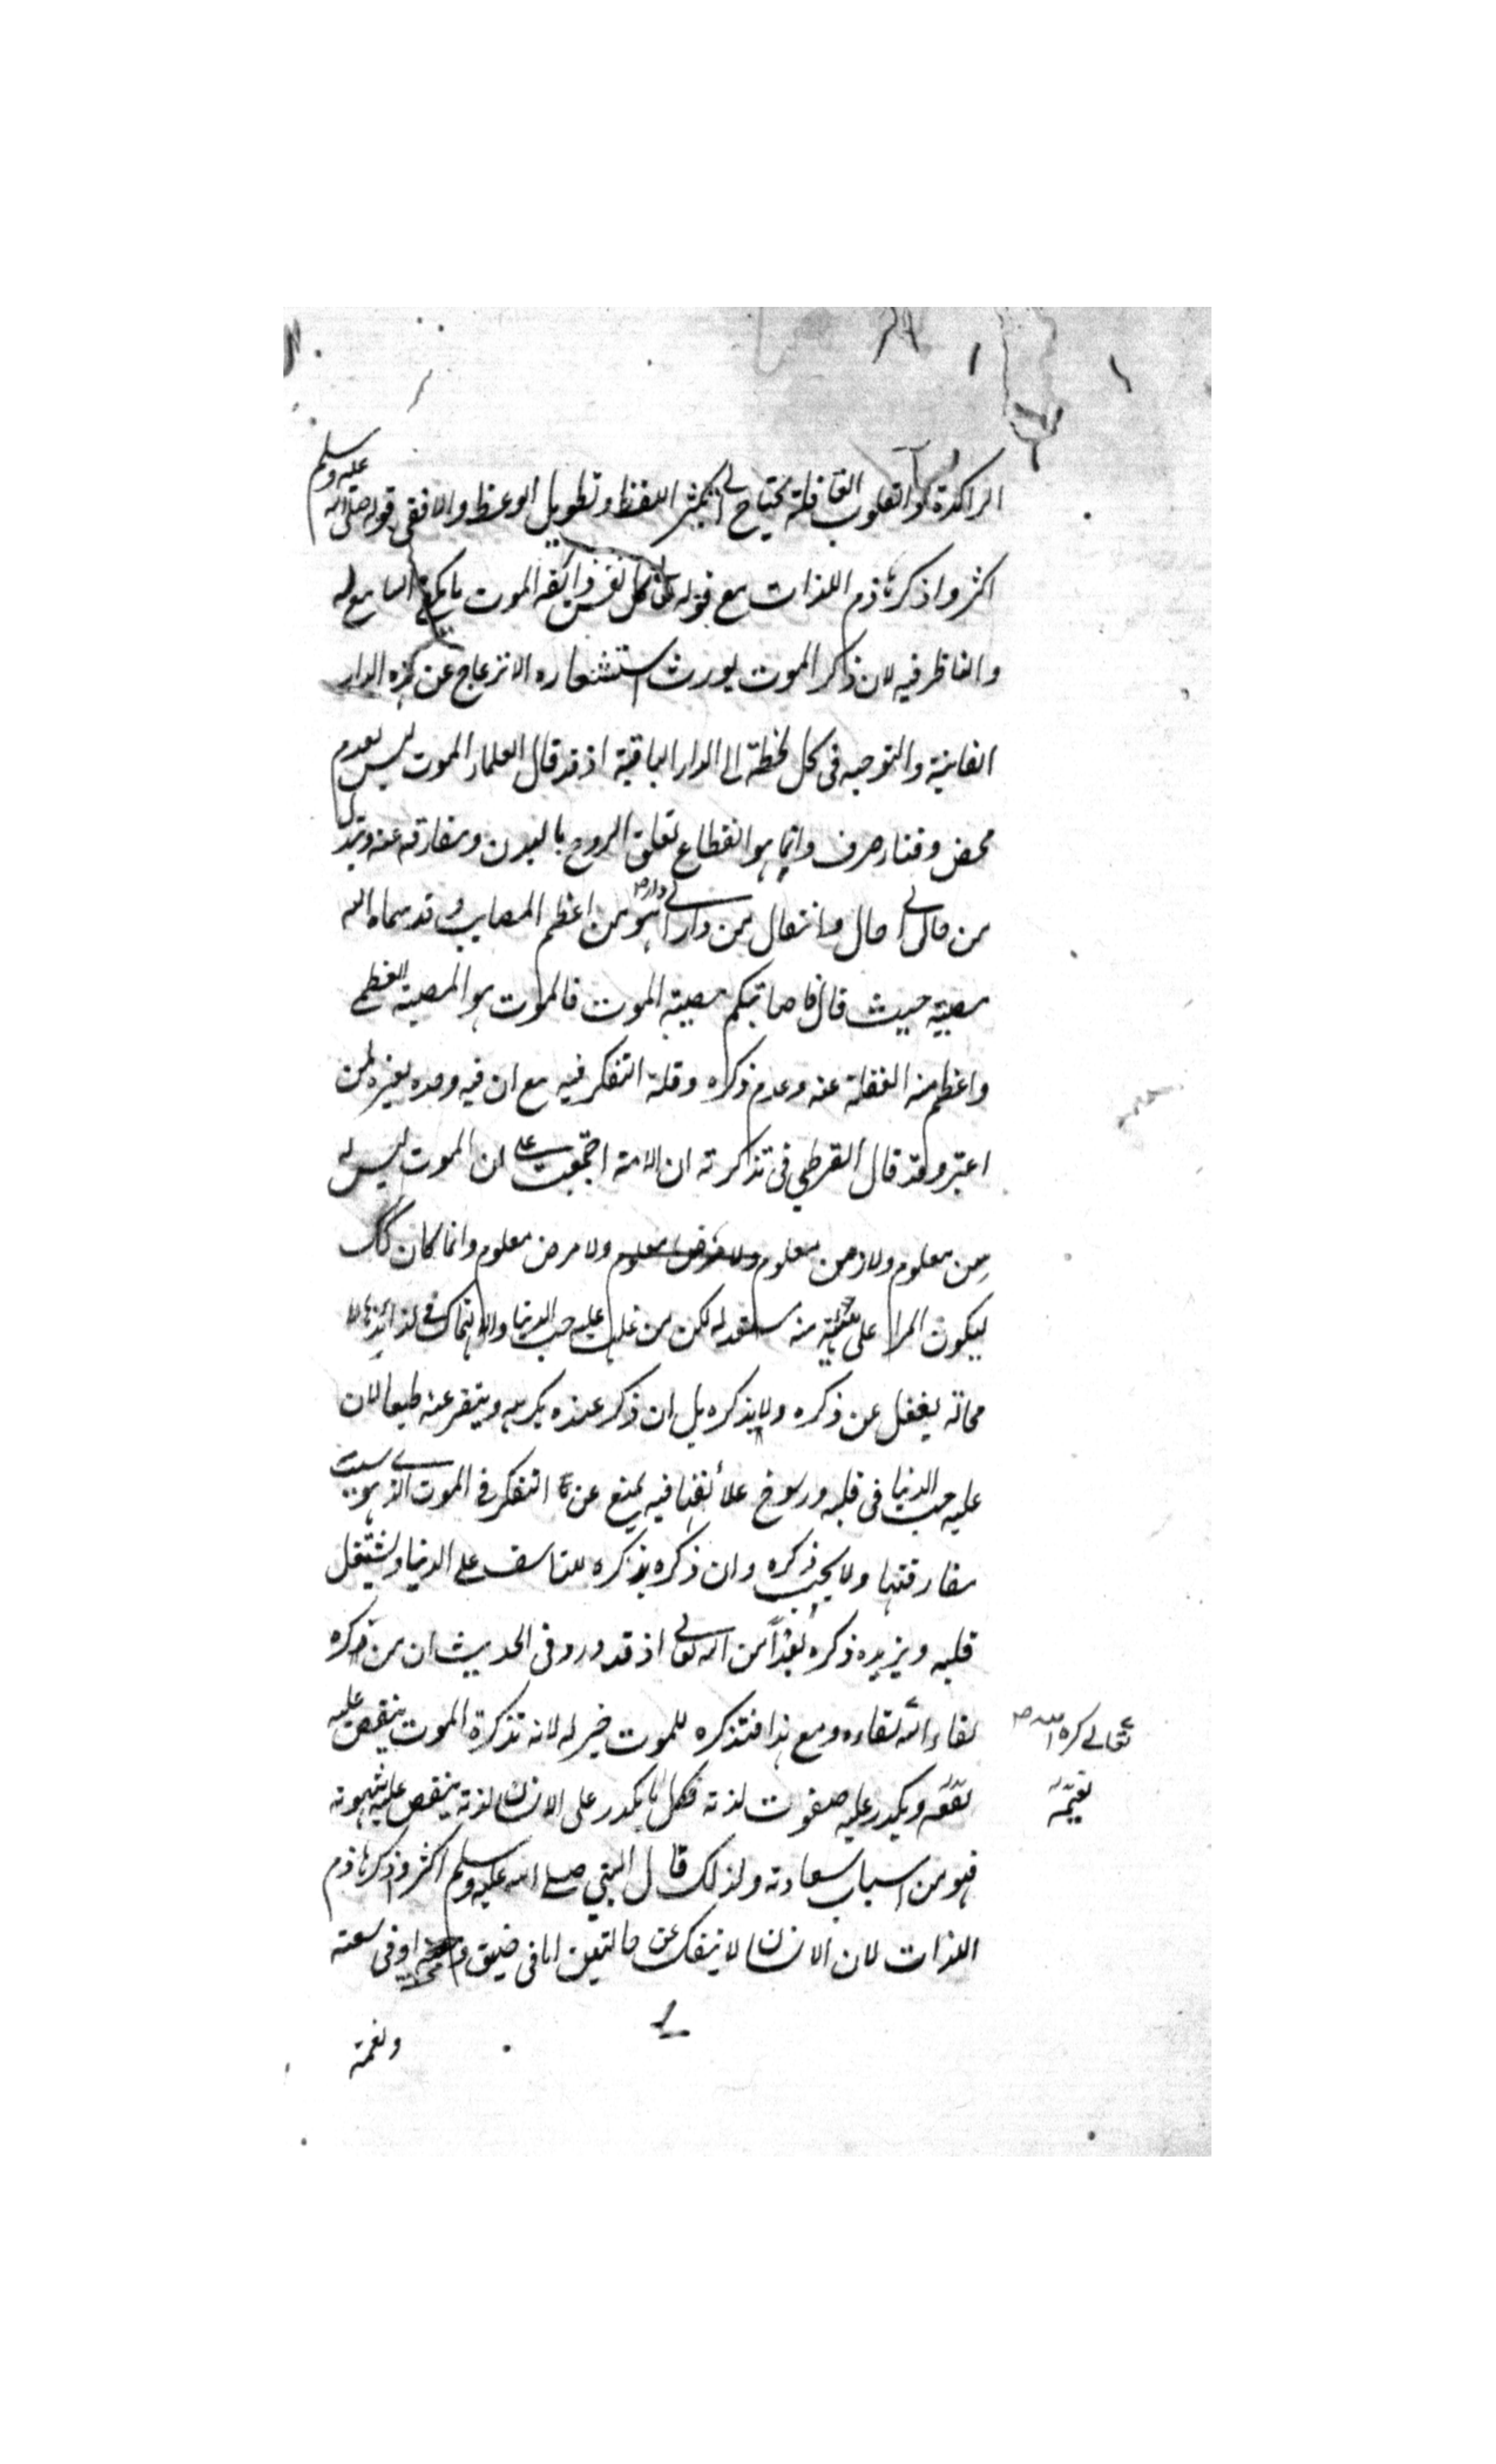 الراكدة والقلوب الغافلة تحتاج الى تكثير اللفظ وتطويل الوعظ والا ففى قوله صلى الله عليه وسلم
اكثروا ذكر هاذم اللذات مع قوله تعالى كل نفس ذائقة الموت ما يكفى السامع له
والناظر فيه لان ذكر الموت يورث استشعاره الانزعاج عن هذه الدار
الفانية والتوجيه فى كل لحظة الى الدار الباقية اذ قد قال العلماء الموت ليس بعدم
محض وفناء صرف وانما هو انقطاع تعلق الروح بالبدن ومفارقته عنه وتبدل
من حال الى حال وانتقال من دار الى دار وهو من اعظم المصايب وقد سماه الله
مصيبة حيث قال فاصابتكم مصيبة الموت فالموت هو المصيبة العظمى
واعظم منه الغفلة عنه وعدم ذكره وقلة التفكر فيه مع ان فيه وحده لعبرة لمن
اعتبر وقد قال القرطبى فى تذكرته ان الامة اجتمعت على ان الموت ليس له
سن معلوم ولا زمن معلوم ولا مرض معلوم وانما كان كذلك
ليكون المرأ على منه مستعد له لكن من غلب عليه حب الدنيا والانهماك فى لذائذها لا
محالة يغفل عن ذكره ولا يذكره بل ان ذكر عنده يكرهه ويتنفر عنه طبعا لان
عليه حب الدنيا فى قلبه ورسوخ علائقها فيه يمنع عن التفكر فى الموت الذى هو سبب
مفارقتها ولا يحب ذكره وان ذكره يذكره للتاسف على الدنيا ويشتغل
قلبه ويزيده ذكره بعدا من الله تعالى اذ قد ورد فى الحديث ان من كره
لقاء الله لقاءه ومع هذا فتذكره للموت خير له لانه تذكرة الموت ينقص عليه
تعالى كره الله صح
نعيمه ويكدر عليه صفوت لذته فكل ما يكدر على الانسان لذته ينقص عليه شهوته
نعيمه
فهو من اسباب سعادته ولذلك قال النبى صلى الله عليه وسلم اكثروا ذكر هاذم
اللذات لان الانسان لا ينفك عن حالتين اما فى ضيق و او فى سعة
ونعمة